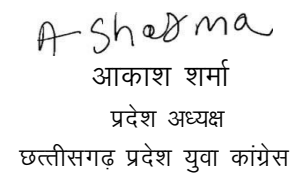 A Sharma
आकाश शर्मा
प्रदेश अध्यक्ष
छत्तीसगढ़ प्रदेश युवा कांग्रेस